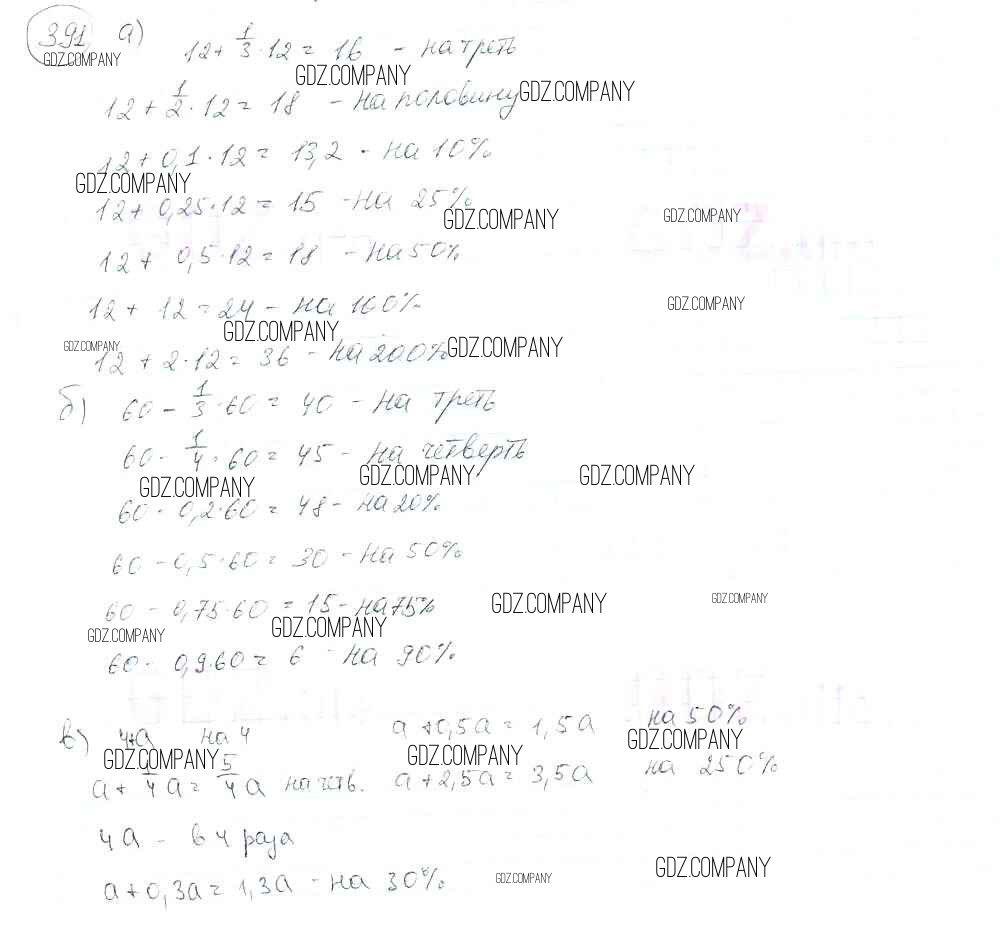 391 а) 12 + 1/3 · 12 = 16 - на треть
GDZ.COMPANY
GDZ.COMPANY
12 + 1/2 · 12 = 18 - на половину GDZ.COMPANY
12 + 0,1 · 12 = 13,2 - на 10%
GDZ.COMPANY
12 + 0,25 · 12 = 15 - на 25%
GDZ.COMPANY GDZ.COMPANY
12 + 0,5 · 12 = 18 - на 50%
12 + 12 = 24 - на 100% GDZ.COMPANY
GDZ.COMPANY
GDZ.COMPANY
12 + 2 · 12 = 36 - на 200% GDZ.COMPANY
б) 60 - 1/3 · 60 = 40 - на треть
60 - 1/4 · 60 = 45 - на четверть
GDZ.COMPANY GDZ.COMPANY GDZ.COMPANY
60 - 0,2 · 60 = 48 - на 20%
60 - 0,5 · 60 = 30 - на 50%
60 - 0,75 · 60 = 15 - на 75% GDZ.COMPANY GDZ.COMPANY
GDZ.COMPANY GDZ.COMPANY
60 - 0,9 · 60 = 6 - на 90%
в) 4+a на 4 a + 0,5a = 1,5a на 50%
GDZ.COMPANY GDZ.COMPANY GDZ.COMPANY
a + 1/4 a = 5/4 a на четв. a + 2,5a = 3,5a на 250%
4a - в 4 раза
a + 0,3a = 1,3a - на 30% GDZ.COMPANY GDZ.COMPANY